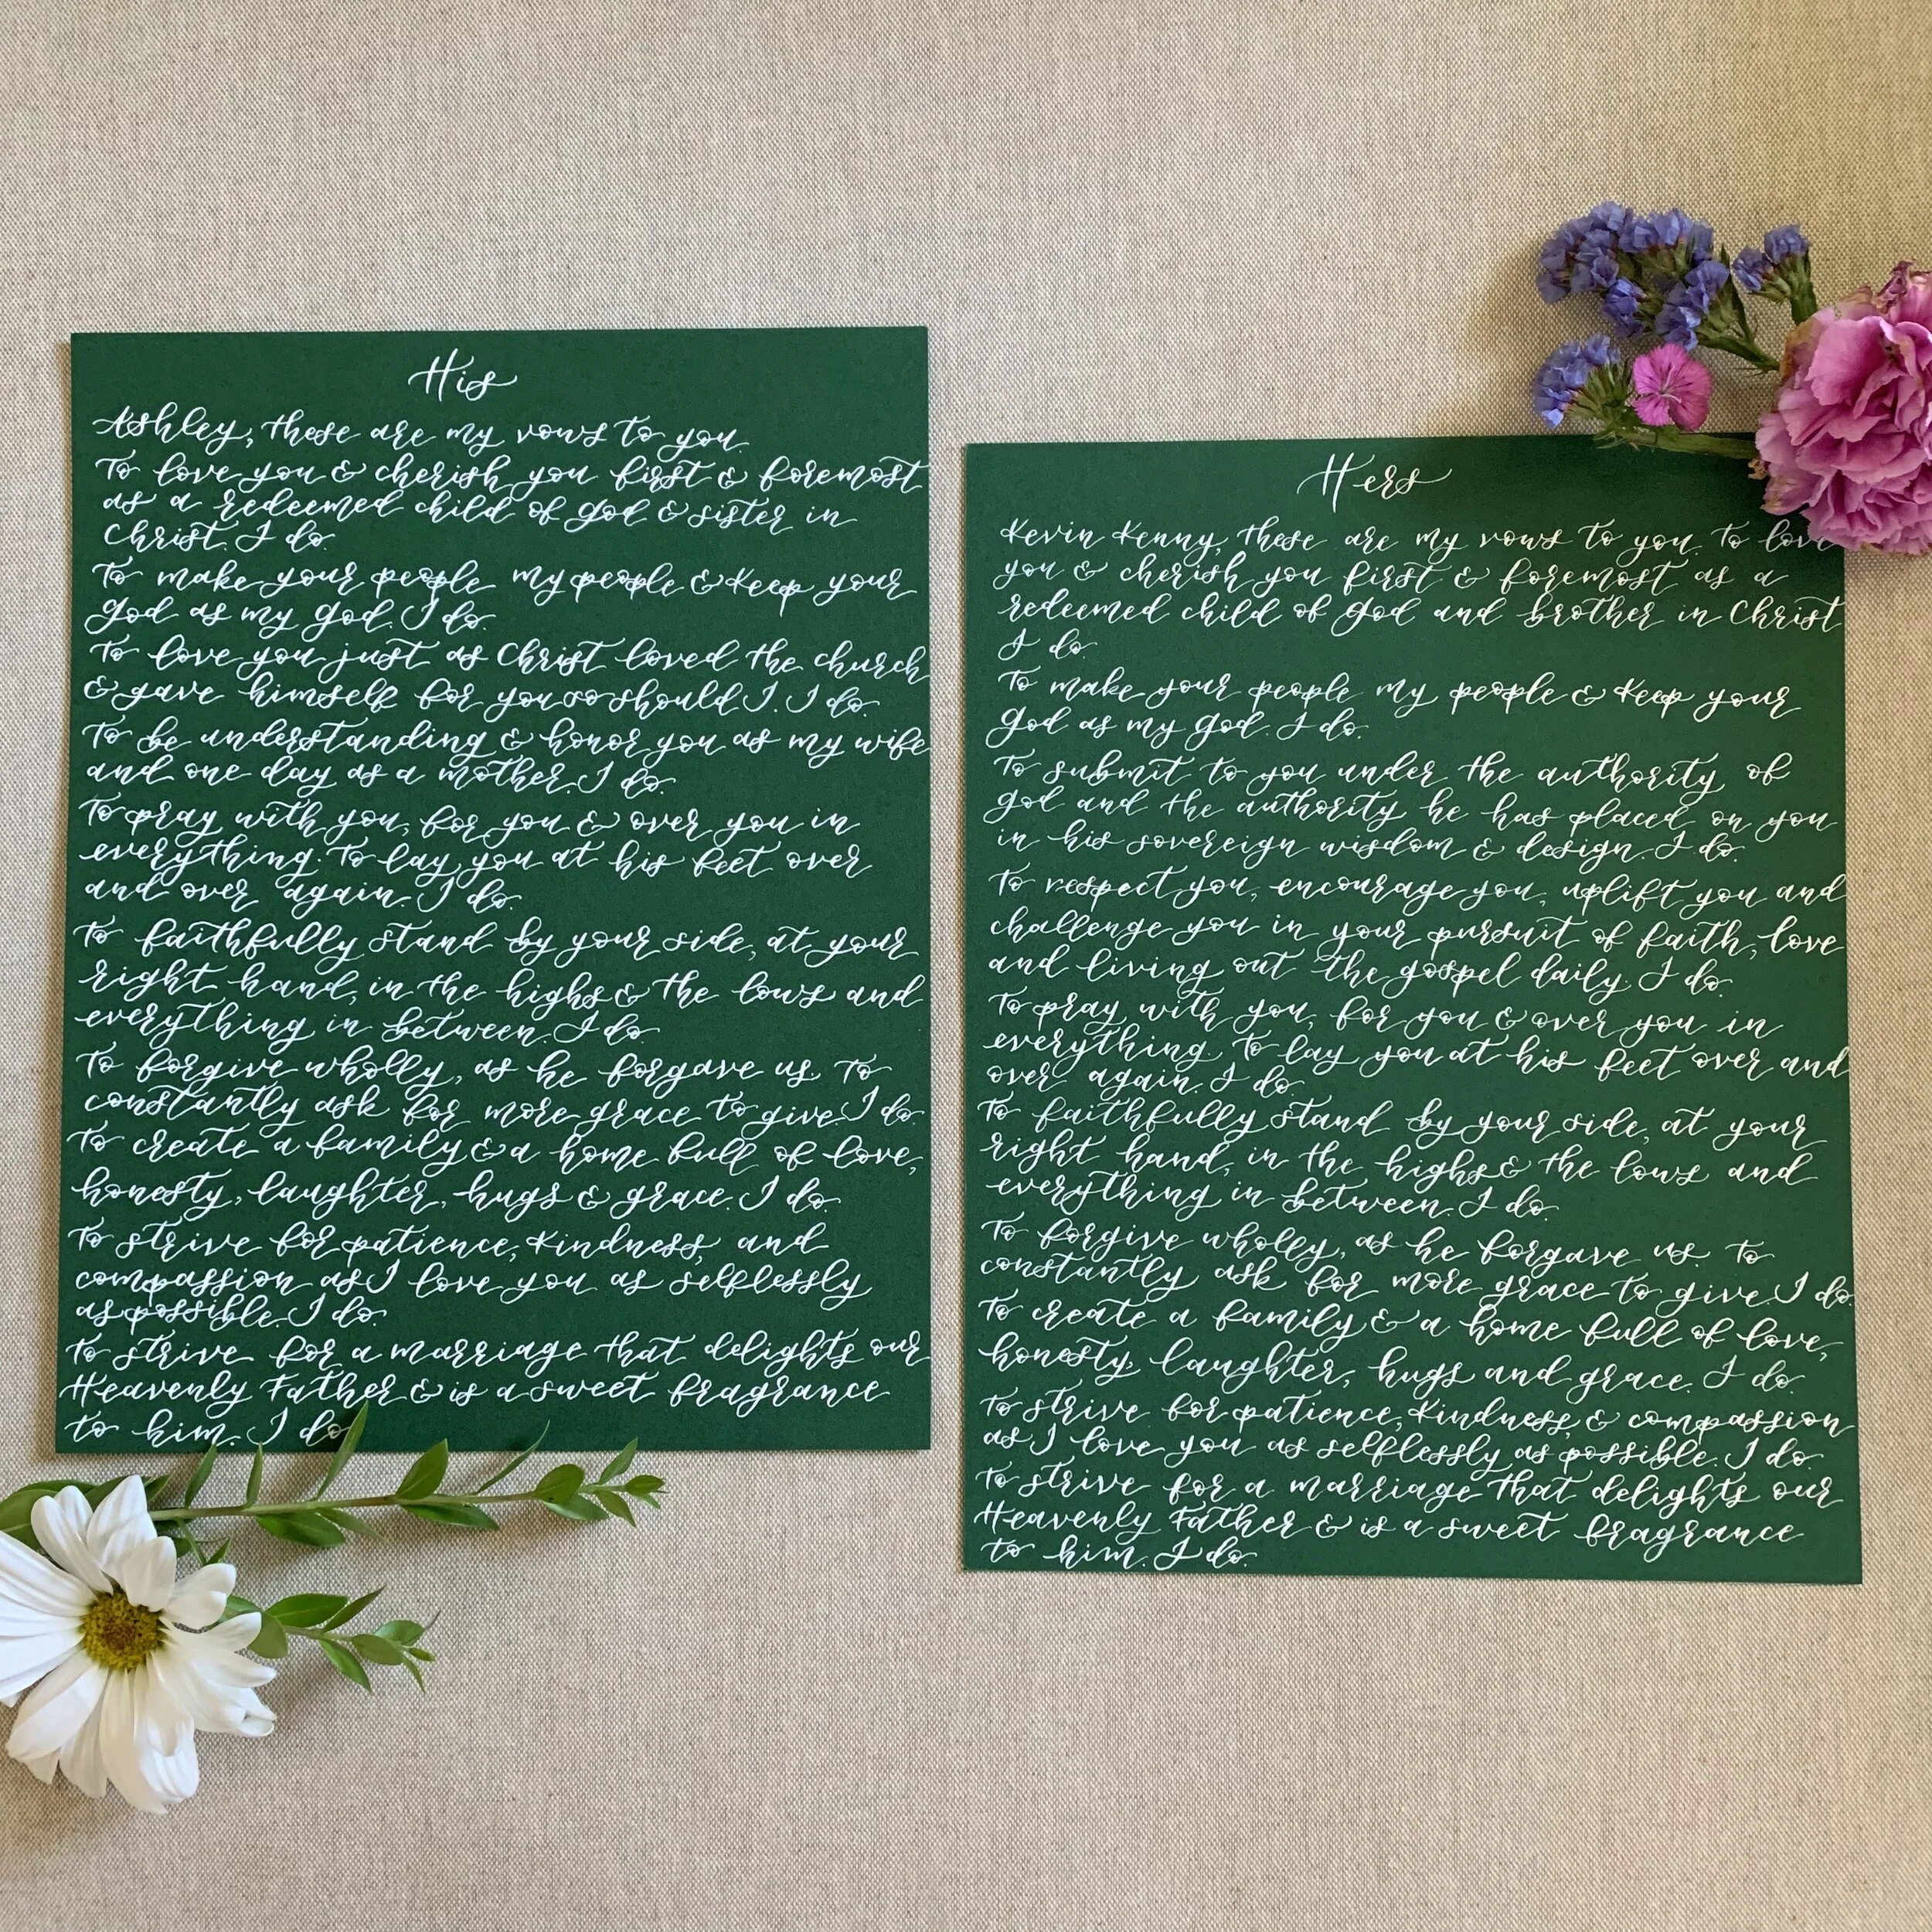 His
Ashley, these are my vows to you.
To love you & cherish you first & foremost
as a redeemed child of God & sister in
Christ. I do.
To make your people my people & keep your
God as my God. I do.
To love you just as Christ loved the church
& gave himself for you so should I. I do.
To be understanding & honor you as my wife
and one day as a mother. I do.
To pray with you, for you & over you in
everything. To lay you at his feet over
and over again. I do.
To faithfully stand by your side, at your
right hand, in the highs & the lows and
everything in between. I do.
To forgive wholly, as he forgave us. To
constantly ask for more grace to give. I do.
To create a family & a home full of love,
honesty, laughter, hugs & grace. I do.
To strive for patience, kindness, and
compassion as I love you as selflessly
as possible. I do.
To strive for a marriage that delights our
Heavenly Father & is a sweet fragrance
to him. I do
Hers
Kevin Kenny, these are my vows to you. To love
you & cherish you first & foremost as a
redeemed child of God and brother in Christ
I do.
To make your people my people & keep your
God as my God. I do.
To submit to you under the authority of
God and the authority he has placed on you
in his sovereign wisdom & design. I do.
To respect you, encourage you, uplift you and
challenge you in your pursuit of faith, love
and living out the gospel daily. I do.
To pray with you, for you & over you in
everything. To lay you at his feet over and
over again. I do.
To faithfully stand by your side, at your
right hand, in the highs & the lows and
everything in between. I do.
To forgive wholly, as he forgave us. To
constantly ask for more grace to give. I do.
To create a family & a home full of love,
honesty, laughter, hugs and grace. I do.
To strive for patience, kindness, & compassion
as I love you as selflessly as possible. I do.
To strive for a marriage that delights our
Heavenly Father & is a sweet fragrance
to him. I do.